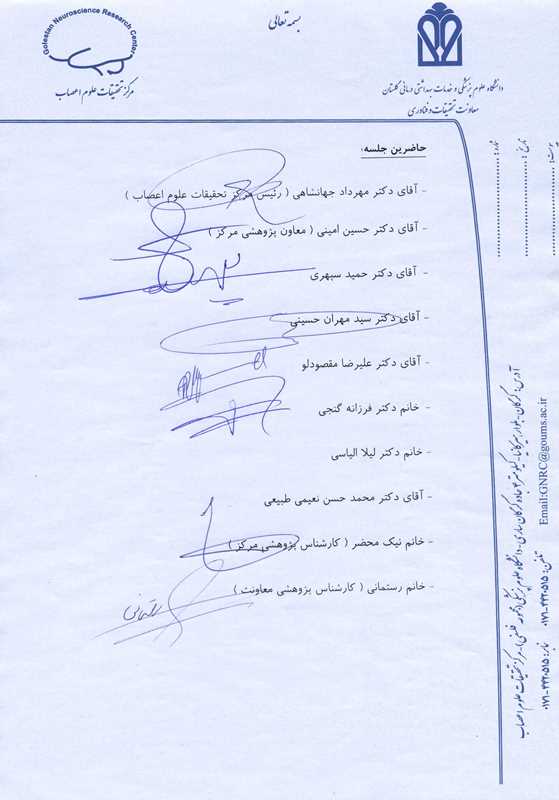 بسمه تعالی
Golestan Neuroscience Research Center
مرکز تحقیقات علوم اعصاب
دانشگاه علوم پزشکی و خدمات بهداشتی درمانی گلستان
معاونت تحقیقات و فناوری
شماره :
تاریخ :
پیوست :
حاضرین جلسه:
- آقای دکتر مهرداد جهانشاهی ( رئیس مرکز تحقیقات علوم اعصاب )
- آقای دکتر حسین امینی ( معاون پژوهشی مرکز )
- آقای دکتر حمید سپهری
- آقای دکتر سید مهران حسینی
- آقای دکتر علیرضا مقصودلو
- خانم دکتر فرزانه گنجی
- خانم دکتر لیلا الیاسی
- آقای دکتر محمد حسن نعیمی طبیعی
- خانم نیک محضر ( کارشناس پژوهشی مرکز )
- خانم رستمانی ( کارشناس پژوهشی معاونت )
آدرس: گرگان- بلوار
جاده گرگان ساری- دانشگاه علوم پزشکی
مرکز تحقیقات علوم اعصاب
تلفن: ۴۴۲۰۵۱۵-۰۱۷۱ نمابر: ۴۴۲۰۵۱۵-۰۱۷۱
Email:GNRC@goums.ac.ir